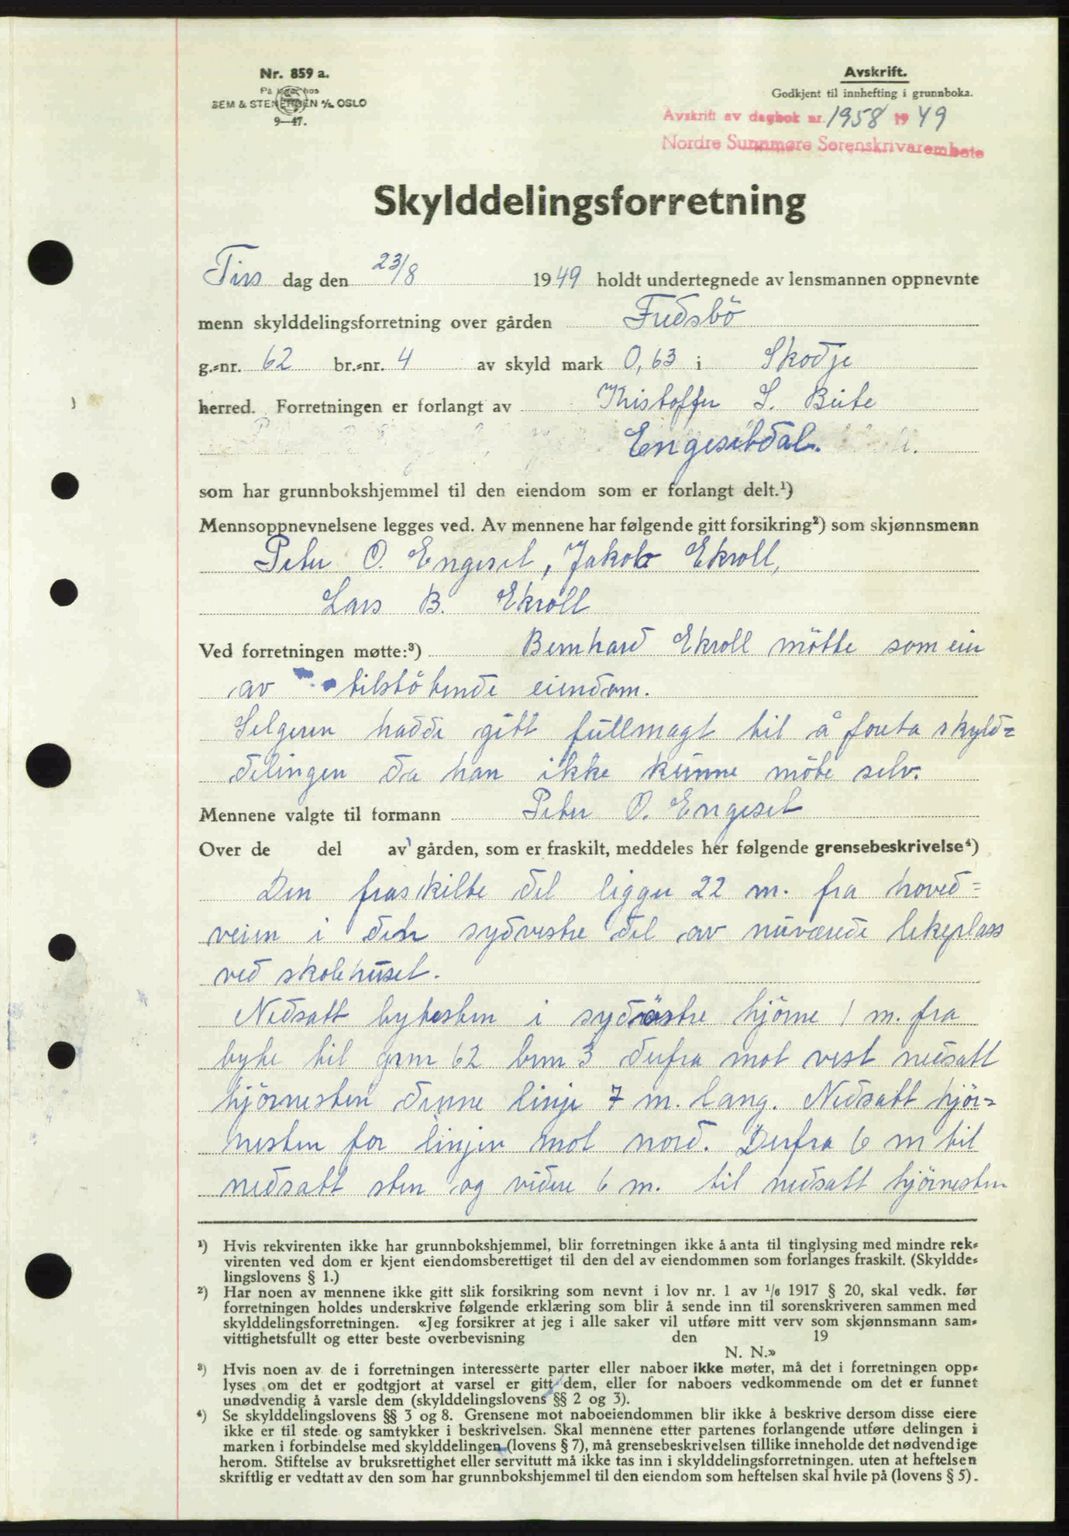 Nr. 859 a.
På lager hos
SEM & STENERSEN A/S OSLO
9—47.
Avskrift.
Godkjent til innhefting i grunnboka.
Avskrift av dagbok nr. 1958 1949
Nordre Sunnmøre Sorenskriverembete
Skylddelingsforretning
Tirs dag den 23/8 1949 holdt undertegnede av lensmannen oppnevnte
menn skylddelingsforretning over gården Fudsbö
g.-nr. 62 br.-nr. 4 av skyld mark 0,63 i Skodje
herred. Forretningen er forlangt av Kristoffer S. Beite
Engesetdal.
som har grunnbokshjemmel til den eiendom som er forlangt delt.¹)
Mennsoppnevnelsene legges ved. Av mennene har følgende gitt forsikring²) som skjønnsmenn
Peter O. Engeset, Jakob Ekroll,
Lars B. Ekroll
Ved forretningen møtte:³) Bernhard Ekroll mötte som eier
av tilstötende eiendom.
Selgeren hadde gitt fullmagt til å foreta skyld=
delingen da han ikke kunne möte selv.
Mennene valgte til formann Peter O. Engeset
Over de del av gården, som er fraskilt, meddeles her følgende grensebeskrivelse⁴)
Den fraskilte del ligger 22 m. fra hoved=
veien i den sydvestre del av nuværede lekeplass
ved skolehuset.
Nedsatt bytesten i sydöstre hjörne 1 m. fra
byte til grnr 62 brnr 3 derfra mot vest nedsatt
hjörnesten denne linje 7 m. lang. Nedsatt hjör=
nesten for linjen mot nord. Derfra 6 m til
nedsatt sten og videre 6 m. til nedsatt hjörnesten
¹) Hvis rekvirenten ikke har grunnbokshjemmel, blir forretningen ikke å anta til tinglysing med mindre rek-
virenten ved dom er kjent eiendomsberettiget til den del av eiendommen som forlanges fraskilt. (Skyldde-
lingslovens § 1.)
²) Har noen av mennene ikke gitt slik forsikring som nevnt i lov nr. 1 av 1/6 1917 § 20, skal vedk. før
forretningen holdes underskrive følgende erklæring som blir å sende inn til sorenskriveren sammen med
skylddelingsforretningen. «Jeg forsikrer at jeg i alle saker vil utføre mitt verv som skjønnsmann sam-
vittighetsfullt og etter beste overbevisning den 19
N. N.»
³) Hvis noen av de i forretningen interesserte parter eller naboer ikke møter, må det i forretningen opp-
lyses om det er godtgjort at varsel er gitt dem, eller for naboers vedkommende om det er funnet
unødvendig å varsle dem (skylddelingslovens §§ 2 og 3).
⁴) Se skylddelingslovens §§ 3 og 8. Grensene mot naboeiendommen blir ikke å beskrive dersom disse eiere
ikke er til stede og samtykker i beskrivelsen. Skal mennene etter partenes forlangende utføre delingen i
marken i forbindelse med skylddelingen (lovens § 7), må grensebeskrivelsen tillike inneholde det nødvendige
herom. Stiftelse av bruksrettighet eller servitutt må ikke tas inn i skylddelingsforretningen. uten at heftelsen
skriftlig er vedtatt av den som har grunnbokshjemmel til den eiendom som heftelsen skal hvile på (lovens § 5).